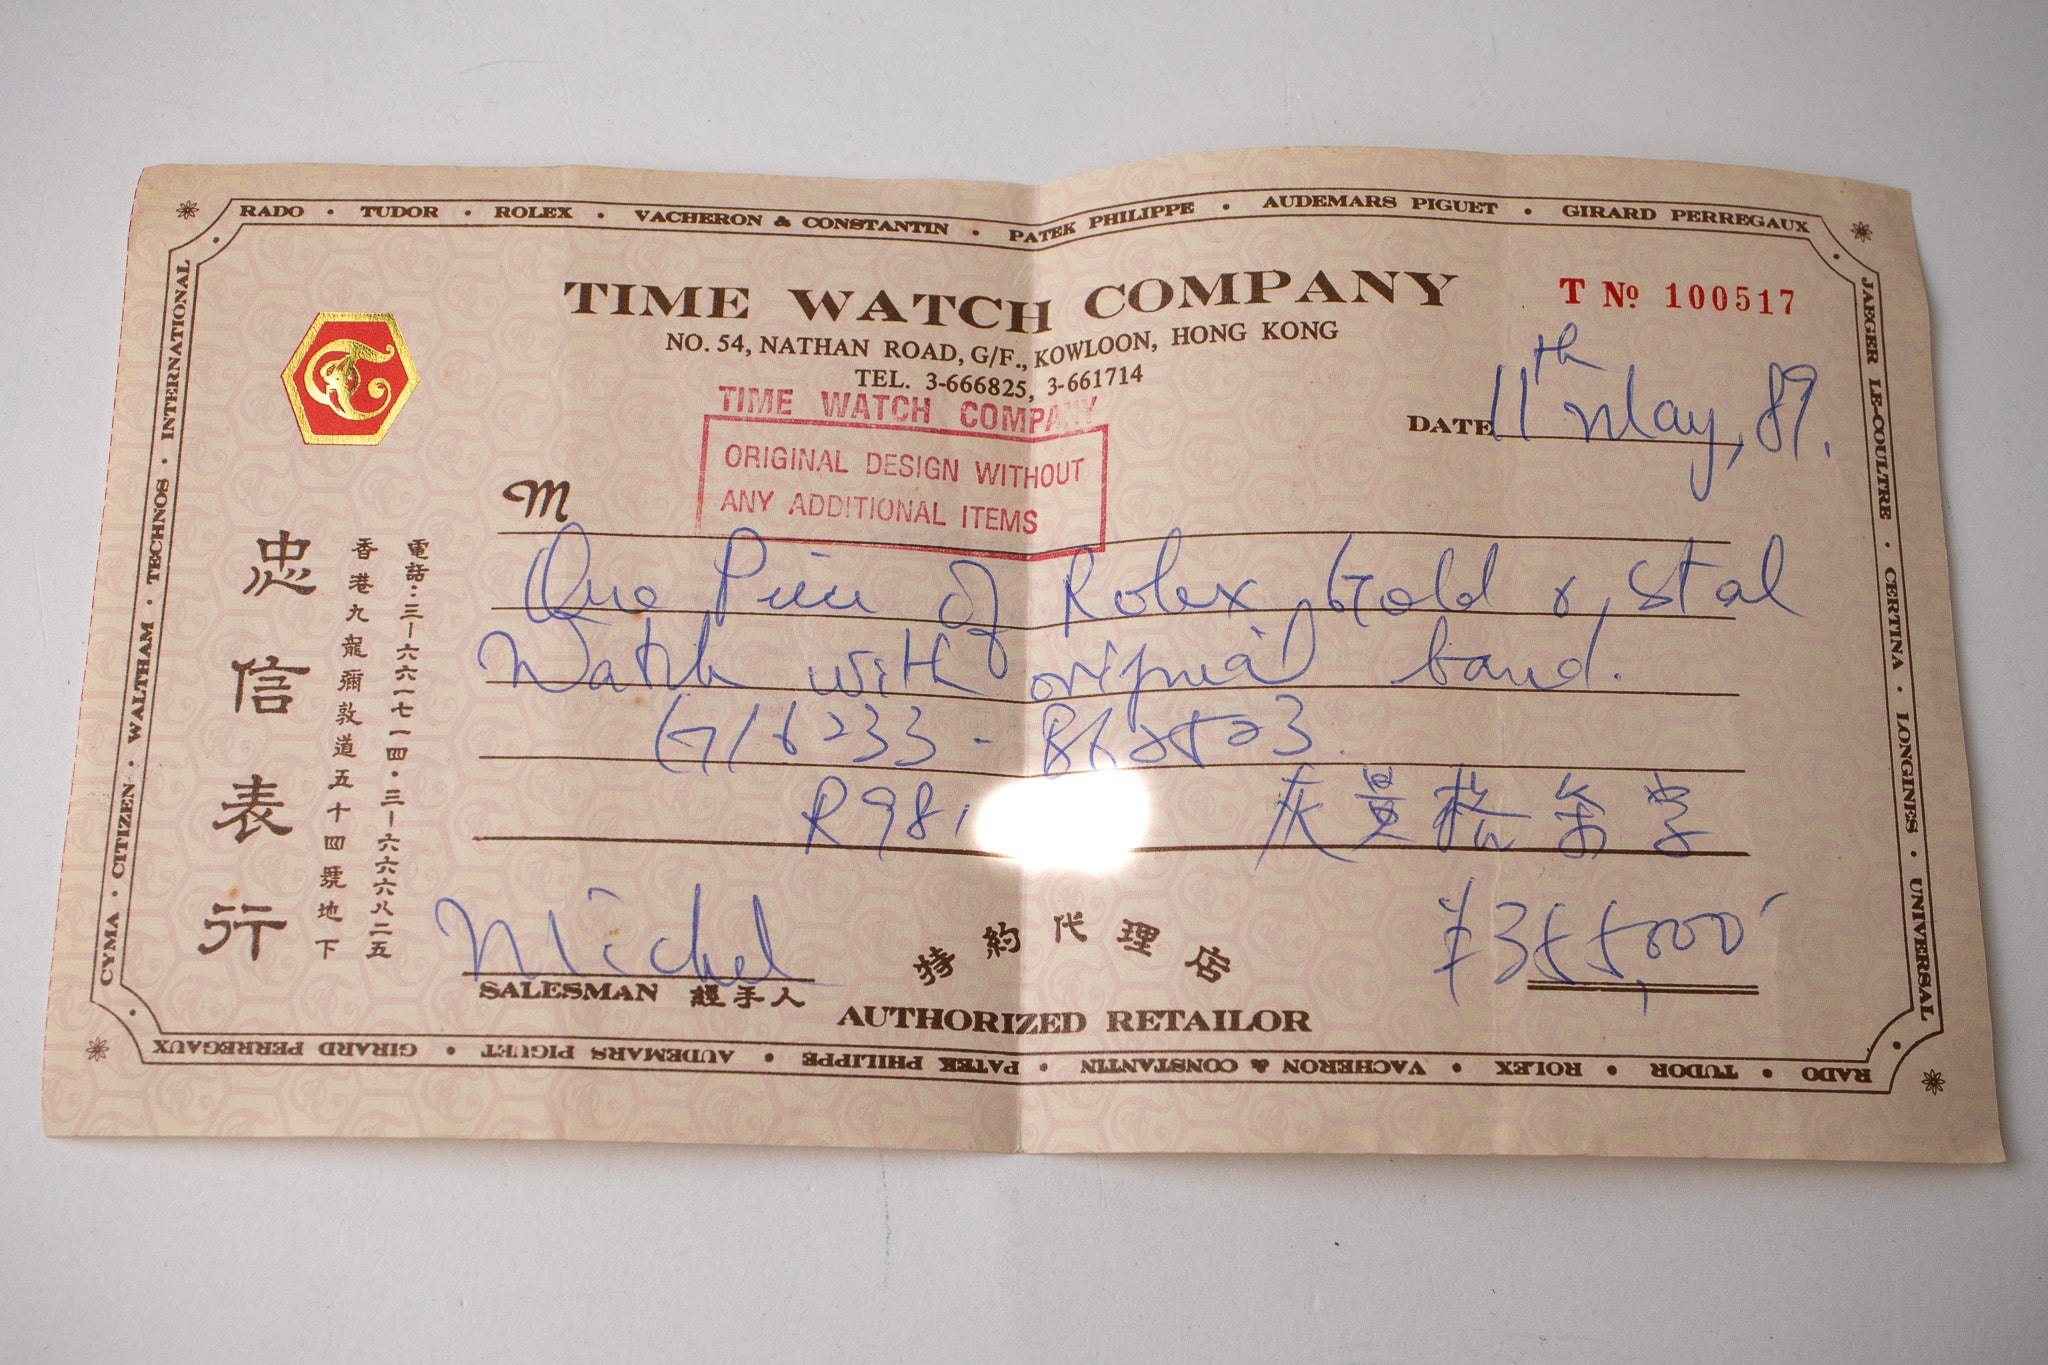 RADO • TUDOR • ROLEX • VACHERON & CONSTANTIN • PATEK PHILIPPE • AUDEMARS PIGUET • GIRARD PERREGAUX
JAEGER LE-COULTRE • CERTINA • LONGINES • UNIVERSAL
CYMA • CITIZEN • WALTHAM • TECHNOS • INTERNATIONAL
TIME WATCH COMPANY
NO. 54, NATHAN ROAD, G/F., KOWLOON, HONG KONG
TEL. 3-666825, 3-661714
T Nº 100517
DATE 11th May, 89.
TIME WATCH COMPANY
ORIGINAL DESIGN WITHOUT
ANY ADDITIONAL ITEMS
M
電話:三—六六一七一四•三—六六六八二五
香港九龍彌敦道五十四號地下
忠信表行
One Piece of Rolex Gold & Steel
Watch with original band.
G/16233 -
R98
¥355,000
Michel
SALESMAN 經手人
特約代理店
AUTHORIZED RETAILOR
RADO • TUDOR • ROLEX • VACHERON & CONSTANTIN • PATEK PHILIPPE • AUDEMARS PIGUET • GIRARD PERREGAUX